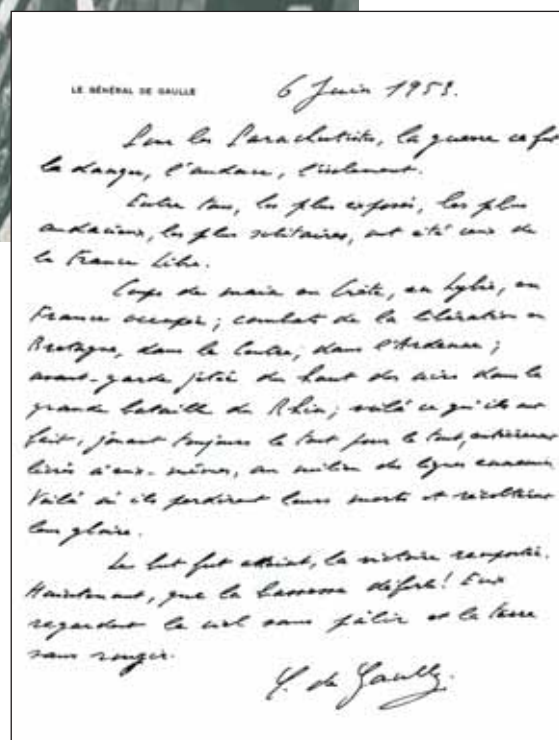 LE GÉNÉRAL DE GAULLE
6 Juin 1953.
Pour les Parachutistes, la guerre ce fut
le danger, l'audace, l'isolement.
Entre tous, les plus exposés, les plus
audacieux, les plus solitaires, ont été ceux de
la France Libre.
Coups de main en Crète, en Lybie, en
France occupée ; combats de la libération en
Bretagne, dans le Centre, dans l'Ardenne ;
avant-garde jetée du haut des airs dans la
grande bataille du Rhin ; voilà ce qu'ils ont
fait, jouant toujours le tout pour le tout, entièrement
livrés à eux-mêmes, au milieu des lignes ennemies.
Voilà où ils perdirent leurs morts et récoltèrent
leur gloire.
Le but fut atteint, la victoire remportée.
Maintenant, que la bassesse déferle ! Eux
regardent le ciel sans pâlir et la terre
sans rougir.
C. de Gaulle.